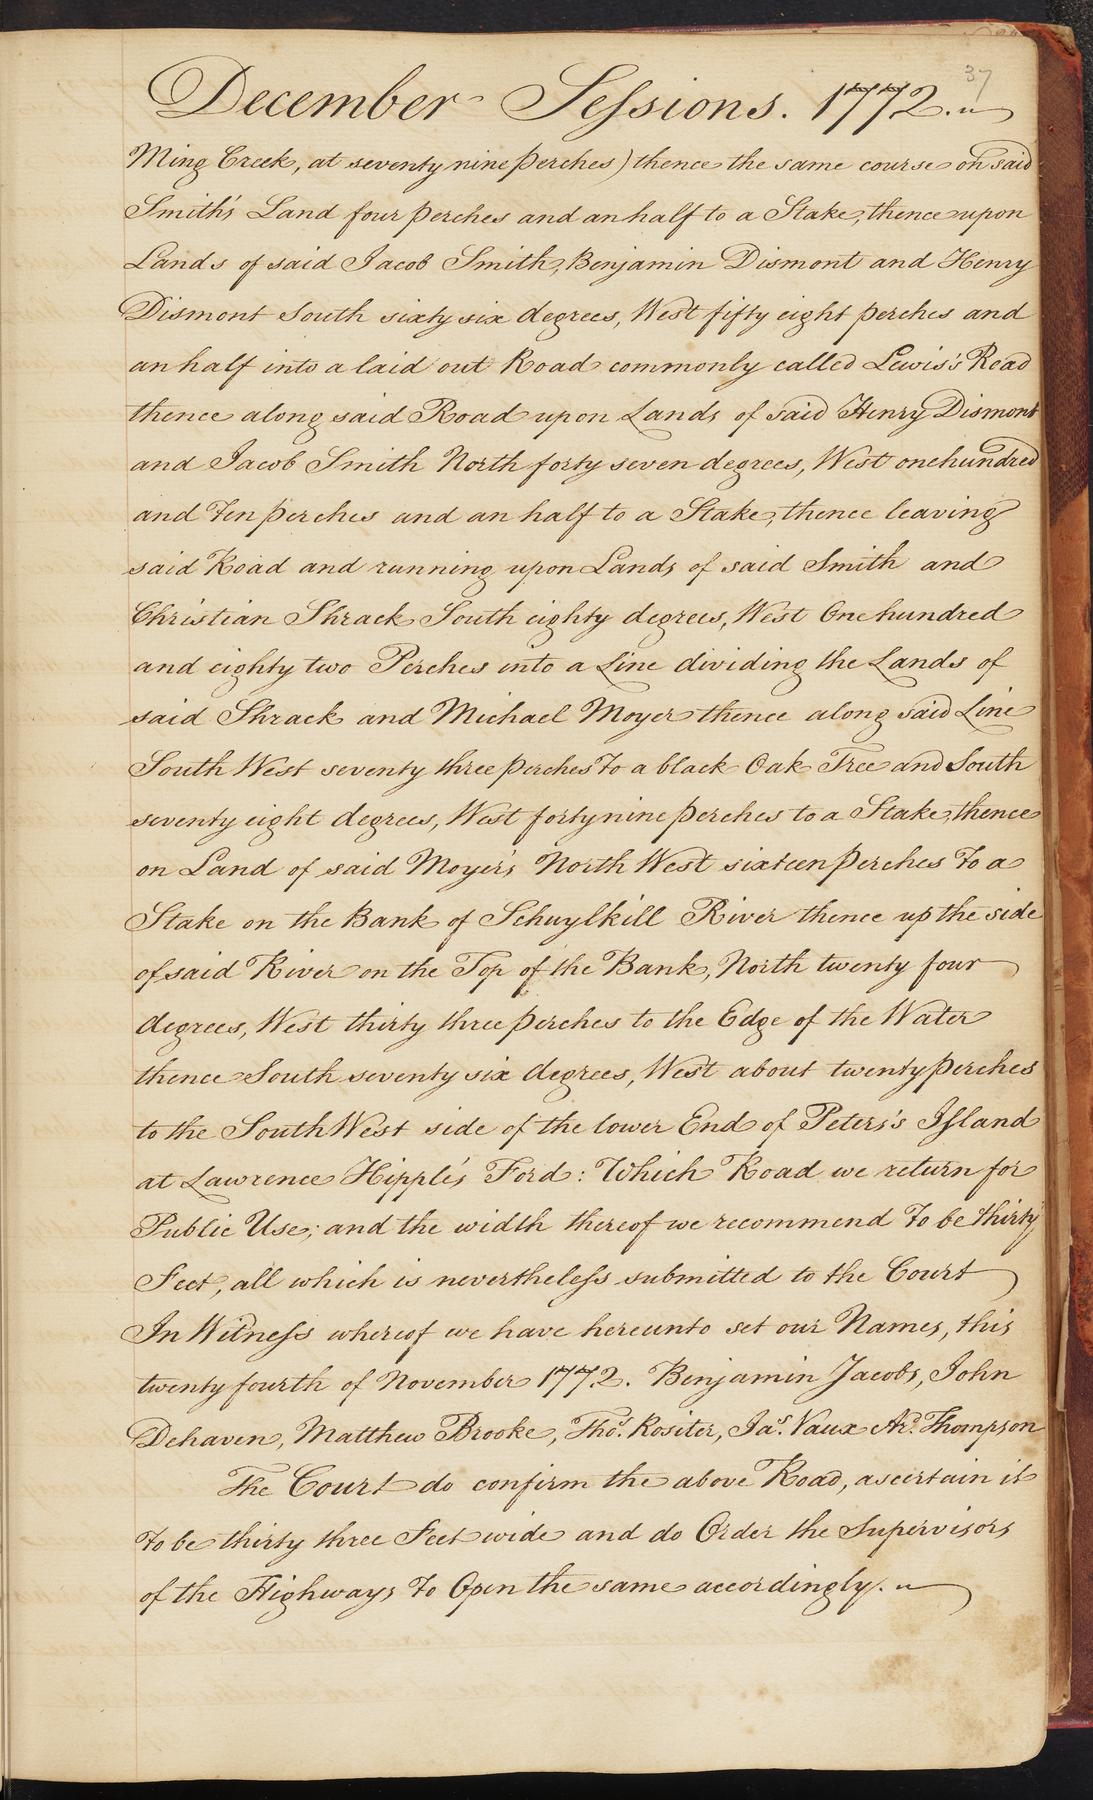 37
December Sessions. 1772.
Ming Creek, at seventy nine perches) thence the same course on said
Smith's Land four perches and an half to a Stake, thence upon
Lands of said Jacob Smith, Benjamin Dismont and Henry
Dismont South sixty six degrees, West fifty eight perches and
an half into a laid out Road commonly called Lewis's Road
thence along said Road upon Lands of said Henry Dismont
and Jacob Smith North forty seven degrees, West one hundred
and Ten perches and an half to a Stake, thence leaving
said Road and running upon Lands of said Smith and
Christian Shrack South eighty degrees, West One hundred
and eighty two Perches into a Line dividing the Lands of
said Shrack and Michael Moyer thence along said Line
South West seventy three perches To a black Oak Tree and South
seventy eight degrees, West forty nine perches to a Stake, thence
on Land of said Moyer's North West sixteen perches To a
Stake on the Bank of Schuylkill River thence up the side
of said River on the Top of the Bank, North twenty four
degrees, West thirty three perches to the Edge of the Water
thence South seventy six degrees, West about twenty perches
to the South West side of the lower End of Peters's Island
at Lawrence Hipple's Ford: Which Road we return for
Public Use; and the width thereof we recommend To be thirty
Feet, all which is nevertheless submitted to the Court
In Witness whereof we have hereunto set our Names, this
twenty fourth of November 1772. Benjamin Jacobs, John
Dehaven, Matthew Brooke, Thos. Rositer, Jas. Vaux Ard. Thompson
The Court do confirm the above Road, ascertain it
To be thirty three Feet wide and do Order the Supervisors
of the Highways To Open the same accordingly.